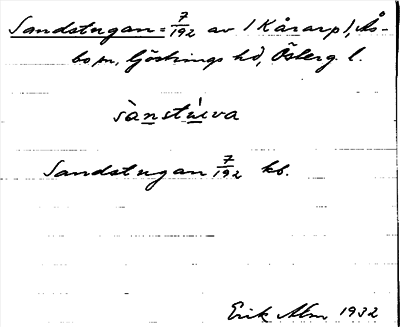 Sandstugan = 7/192 av 1 Kårarp 1, Ås-
bo sn, Göstrings hd, Österg. l.
sànstúẁva
Sandstugan 7/192 kb.
Erik Alm 1932